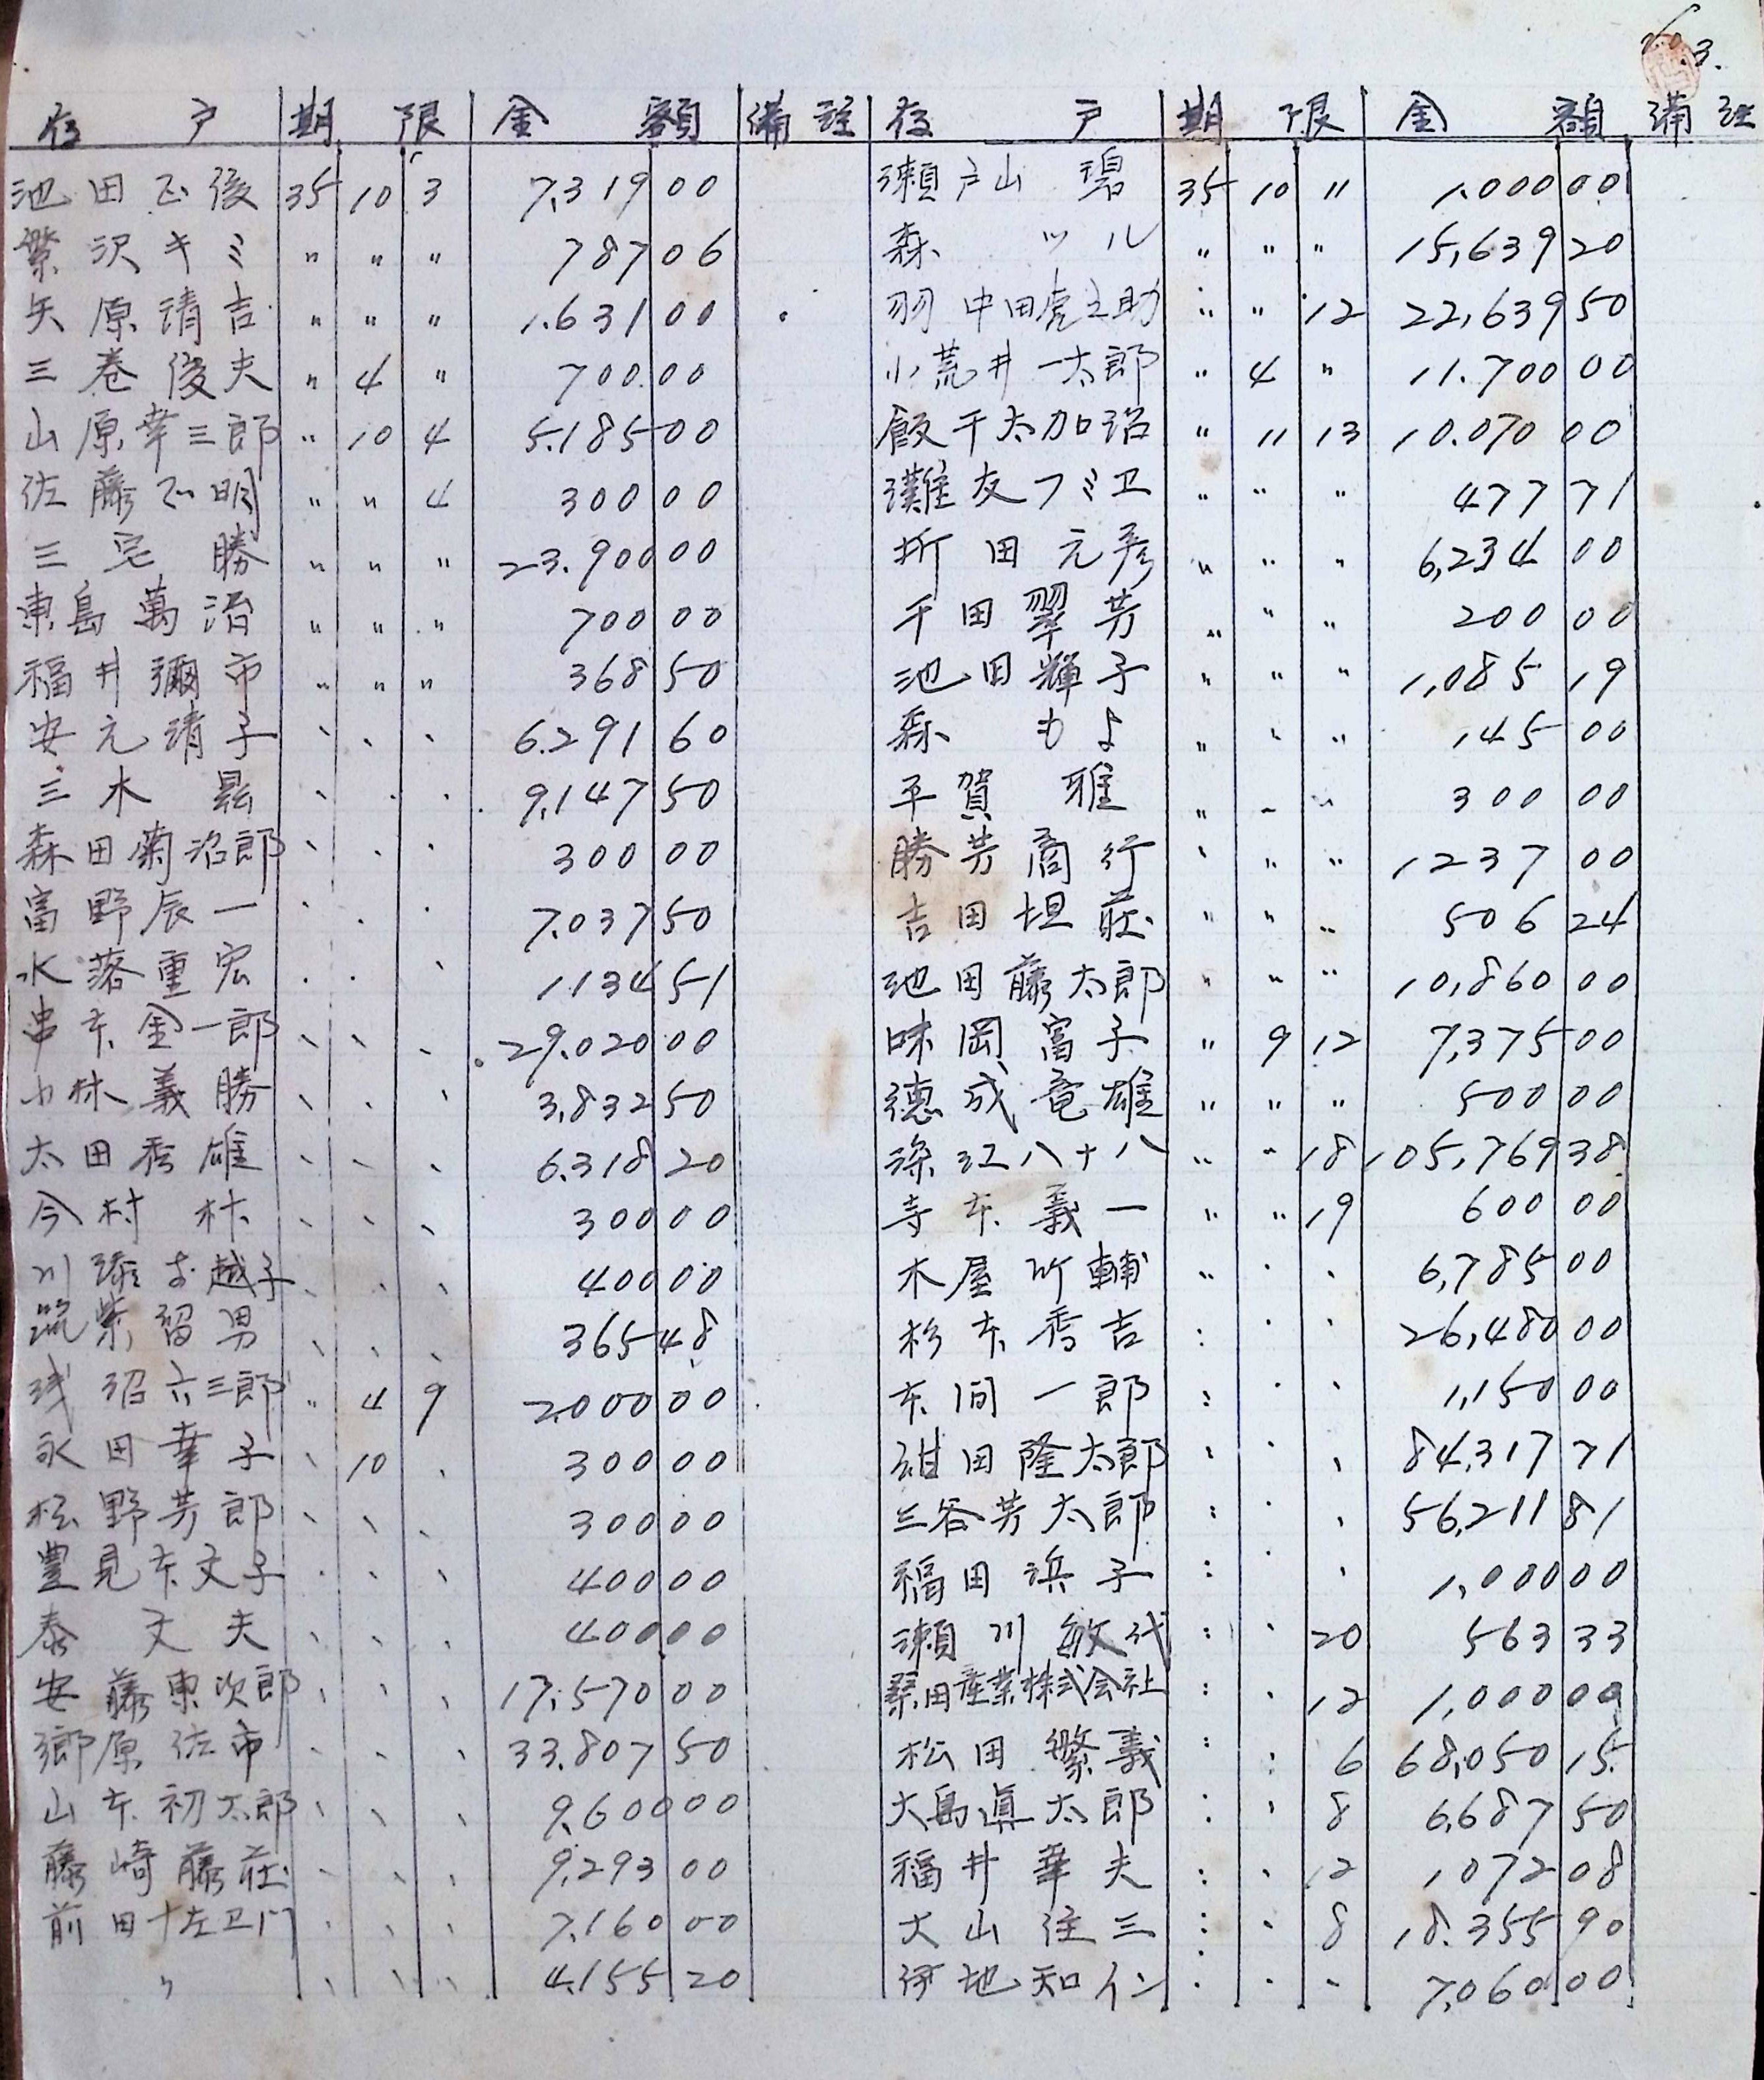 No.3.
存戸 期限 金額 備註
池田正俊 35 10 3 7,319 00
繁沢キミ 〃 〃 〃 787 06
矢原清吉 〃 〃 〃 1.631 00
三巻俊夫 〃 4 〃 700.00
山原幸三郎 〃 10 4 5.185 00
佐藤正明 〃 〃 4 300 00
三宅勝 〃 〃 〃 23.900 00
東島萬治 〃 〃 〃 700 00
福井彌市 〃 〃 〃 368 50
安元靖子 、 、 、 6.291 60
三木 、 . . 9,147 50
森田菊治郎 、 . . 300 00
富野辰一 . . . 7.037 50
水落重宏 . . 、 1.134 51
串本金一郎 、 、 、 29.020 00
小林義勝 、 . 、 3,832 50
太田秀雄 、 、 、 6.318 20
今村 、 、 、 300 00
川 越子 、 、 、 400 00
筑紫留男 、 、 、 365 48
浅沼六三郎 〃 4 9 2.000 00
永田幸子 、 10 、 300 00
松野芳郎 、 、 、 300 00
豊見本文子 . 、 、 400 00
泰文夫 、 、 、 400 00
安藤東次郎 、 、 、 17,570 00
郷原佐市 、 、 、 33.807 50
山本初太郎 、 、 、 9,600 00
藤崎藤荘 、 、 、 9,293 00
前田十左卫门 、 、 、 7,160 00
〃 、 、 、 4.155 20
存戸 期限 金額 備註
瀬戸山碧 35 10 11 1.000 00
森ツル 〃 〃 〃 15,639 20
羽中田虎之助 〃 〃 12 22,639 50
小荒井一太郎 〃 4 〃 11.700 00
飯干太加治 〃 11 13 10.070 00
灘友フミヱ 〃 〃 〃 477 71
折田元彦 〃 〃 〃 6,234 00
千田翠芳 〃 〃 〃 200 00
池田輝子 〃 〃 〃 1,085 19
森もよ 〃 〃 〃 145 00
平賀雅 〃 〃 〃 300 00
勝芳商行 、 〃 〃 1237 00
吉田坦荘 〃 〃 〃 506 24
池田藤太郎 〃 〃 〃 10,860 00
味岡富子 〃 9 12 7,375 00
徳成竜雄 〃 〃 〃 500 00
深江八十八 〃 〃 18 105,769 38
寺本義一 〃 〃 19 600 00
木屋竹輔 〃 . . 6,785 00
杉本秀吉 : . . 26,480 00
本间一郎 : . . 1,150 00
紺田隆太郎 : . 、 84,317 71
三谷芳太郎 : . 、 56,211 81
福田浜子 : . 、 1,000 00
瀬川敏代 : . 20 563 33
田産業株式会社 : . 12 1,000 00
松田繁義 : : 6 68,050 15
大島真太郎 : 、 8 6,687 50
福井幸夫 : 、 12 1072 08
大山 三 : 、 8 18.355 90
伊地知イシ . . . 7,060 00